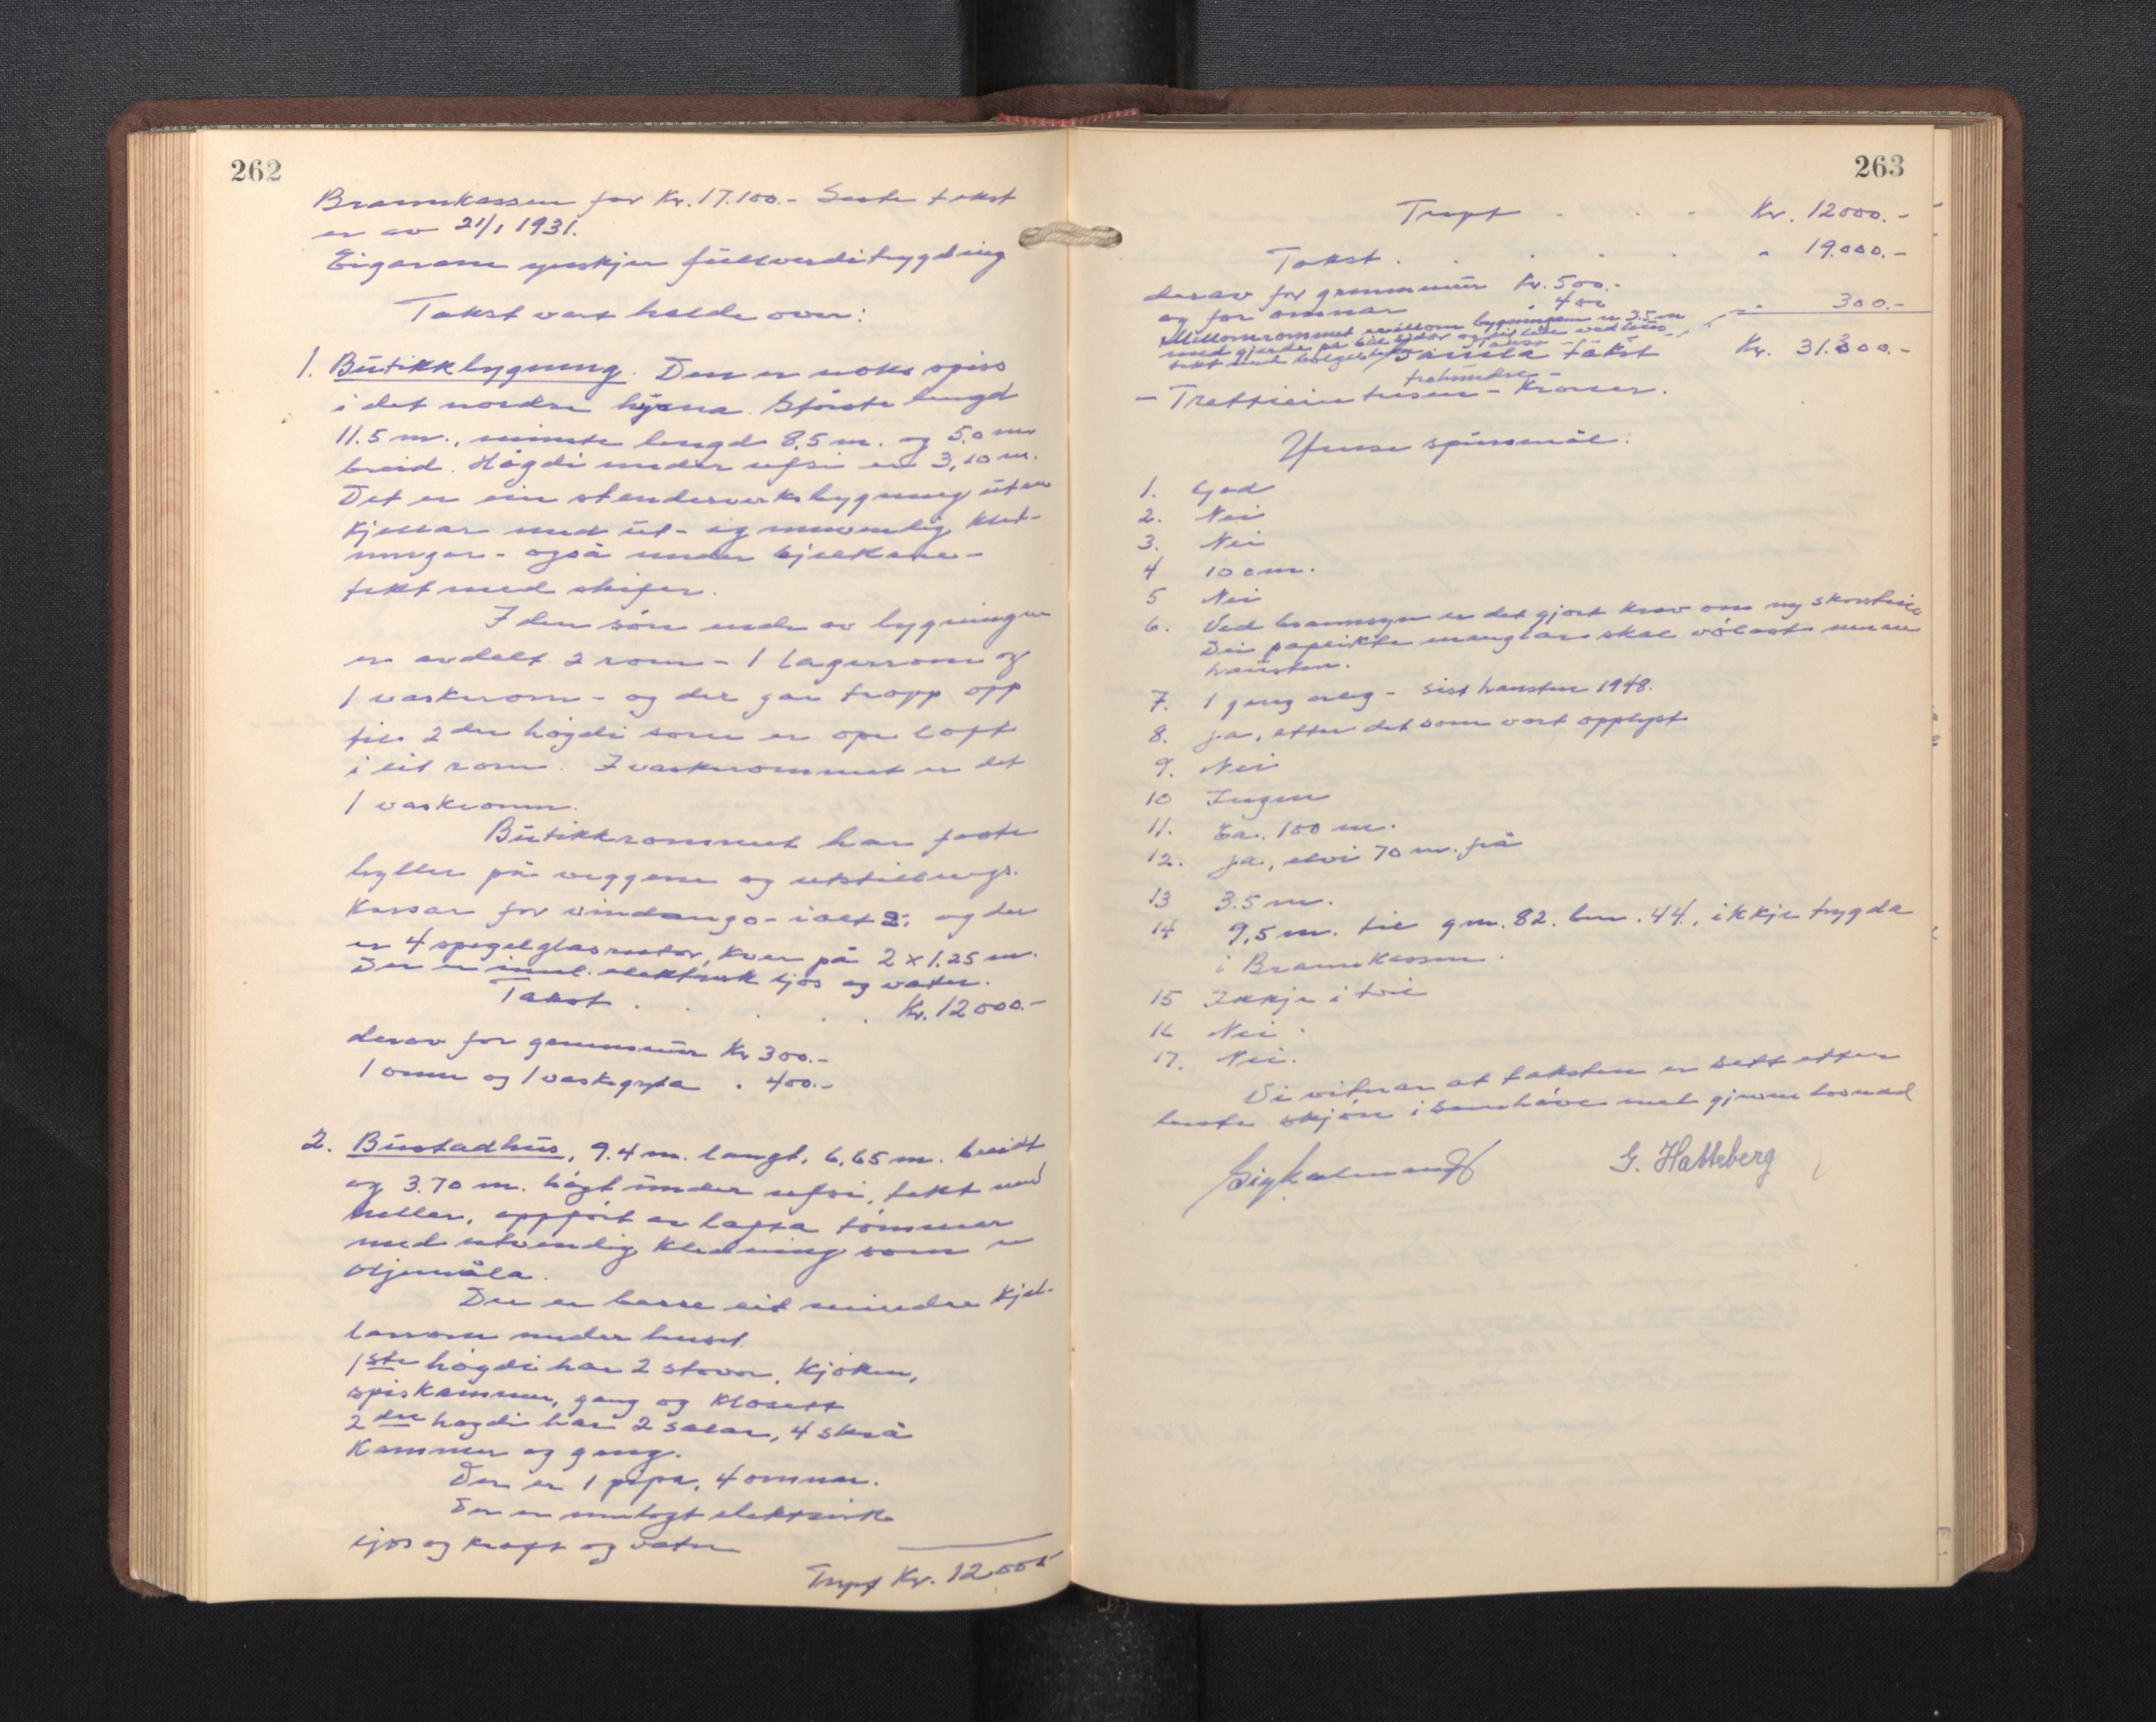 262
Brannkassen for Kr. 17.100.- Siste takst
er av 21/1 1931.
Eigarane ynskjer fullverditrygding
Takst vart halde over:
1. Butikkbygning. Den er noko spiss
i det nordre hyrna. Største lengd
11.5 m., minste lengd 8,5 m. og 5.0 m
breid. Høgdi under ufsi er 3,10 m.
Det er ein stenderverksbygning utan
kjellar med ut- og innvendig kled-
ningar - også under bjelkane -
tekt med skifer.
I den søre ende av bygningen
er avdelt 2 rom - 1 lagerrom og
1 vaskerom - og der går tropp opp
til 2den høgdi som er ope loft
i eit rom. I vaskerommet er det
1 vaskeomn.
Butikkrommet har faste
hyller på veggene og utstillings-
kassar for vindaugo - ialt 2; og der
er 4 spegelglasrutor, kver på 2 x 1.25 m.
Der er innl. elektrisk ljos og vatn.
Takst . . . . . Kr. 12000.-
derav for grunnmur Kr 300.-
1 omn og 1 vaskegryta " 400.-
2. Bustadhus, 9.4 m. langt, 6,65 m. breidt
og 3.70 m. høgt under ufsi, tekt med
heller, oppført av lafta tømmer
med utvendig kledning som er
oljemåla.
Der er berre eit mindre kjel-
larrom under huset.
1ste høgdi har 2 stovor, kjøken,
spiskammer, gang og klosett
2dre høgdi har 2 salar, 4 skrå
kammer og gang.
Der er 1 pipa, 4 omnar.
Der er innlagt elektrisk
ljos og kraft og vatn
Transp Kr. 12.000.-
263
Transp . . . Kr. 12000.-
Takst . . . . . " 19.000.-
derav for grunnmur Kr. 500.-
og for omnar " 400
Millomrommet millom bygningane er 3.5 m
med gjerde på båe sidor og eit lite vedhus
tekt med bølgeblekk. Takst - - - " 300.-
Samla takst Kr. 31.300.-
trehundre -
- Trettiein tusen - Kroner.
Ymse spursmål:
1. God
2. Nei
3. Nei
4 10 cm.
5 Nei
6. Ved brannsyn er det gjort krav om ny skorstein
Dei papeikte manglar skal vølast
hausten.
7. 1 gang årleg - sist hausten 1948.
8. Ja, etter det som vart opplyst
9. Nei
10 Ingen
11. Ca. 100 m.
12. Ja, elvi 70 m. frå
13 3.5 m.
14 9,5 m. til gnr. 82. bnr. 44., ikkje trygda
i Brannkassen.
15 Ikkje i tvil
16 Nei
17. Nei.
Vi vitnar at taksten er sett etter
beste skjøn i samhøve med gjevne lovnad
G. Hatteberg